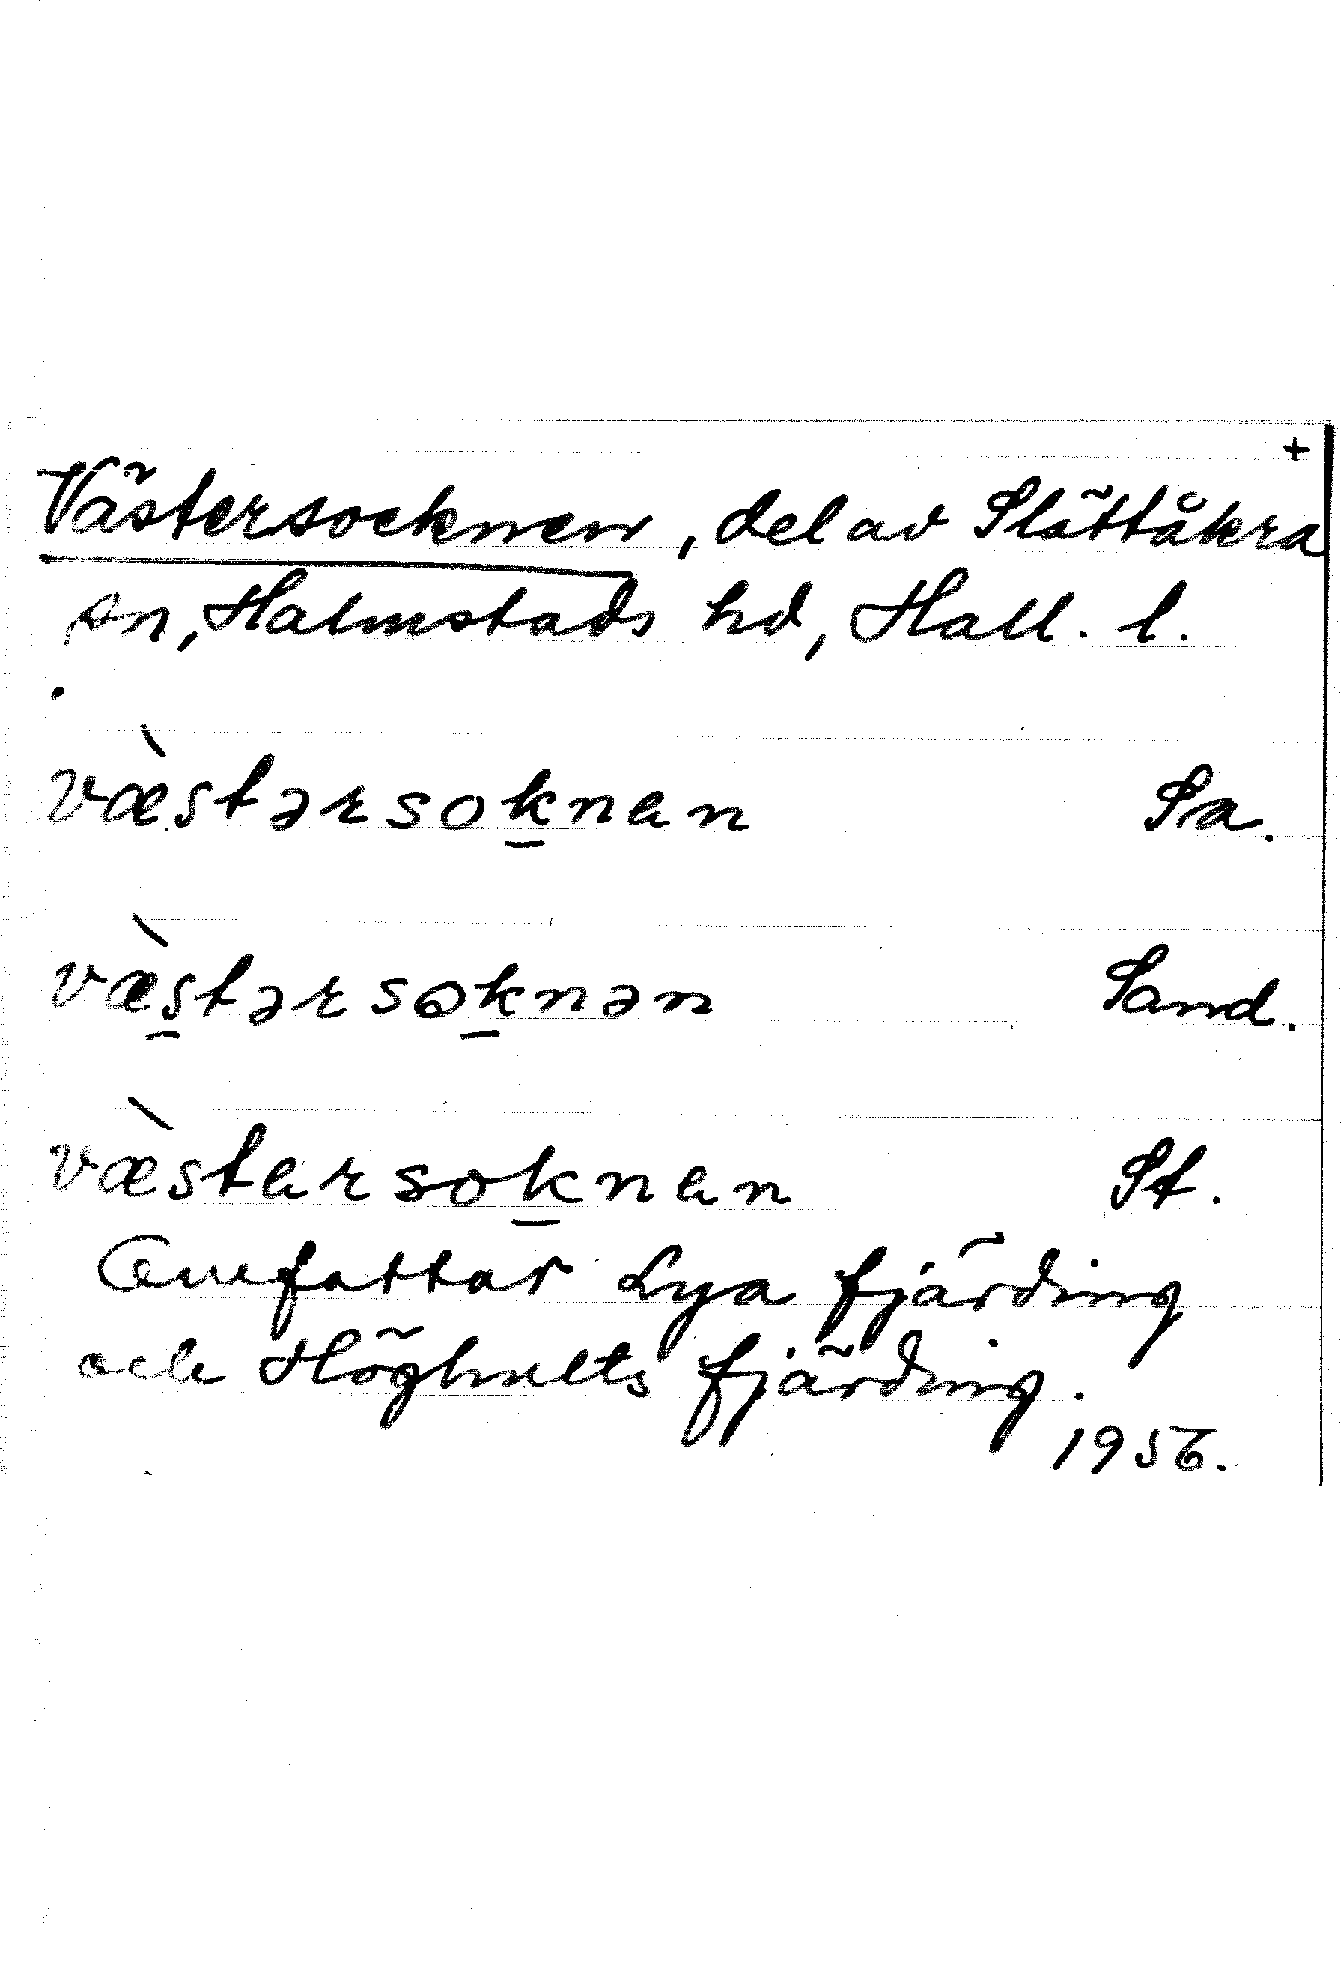 +
Västersocknen, del av Slättåkra
sn, Halmstads hd, Hall. l.
væ̀stərsok̲nan Sa.
væ̀s̲tərsok̲nən Sand.
væ̀starsok̲nan St.
Omfattar Lya fjärding
och Höghults fjärding.
1956.